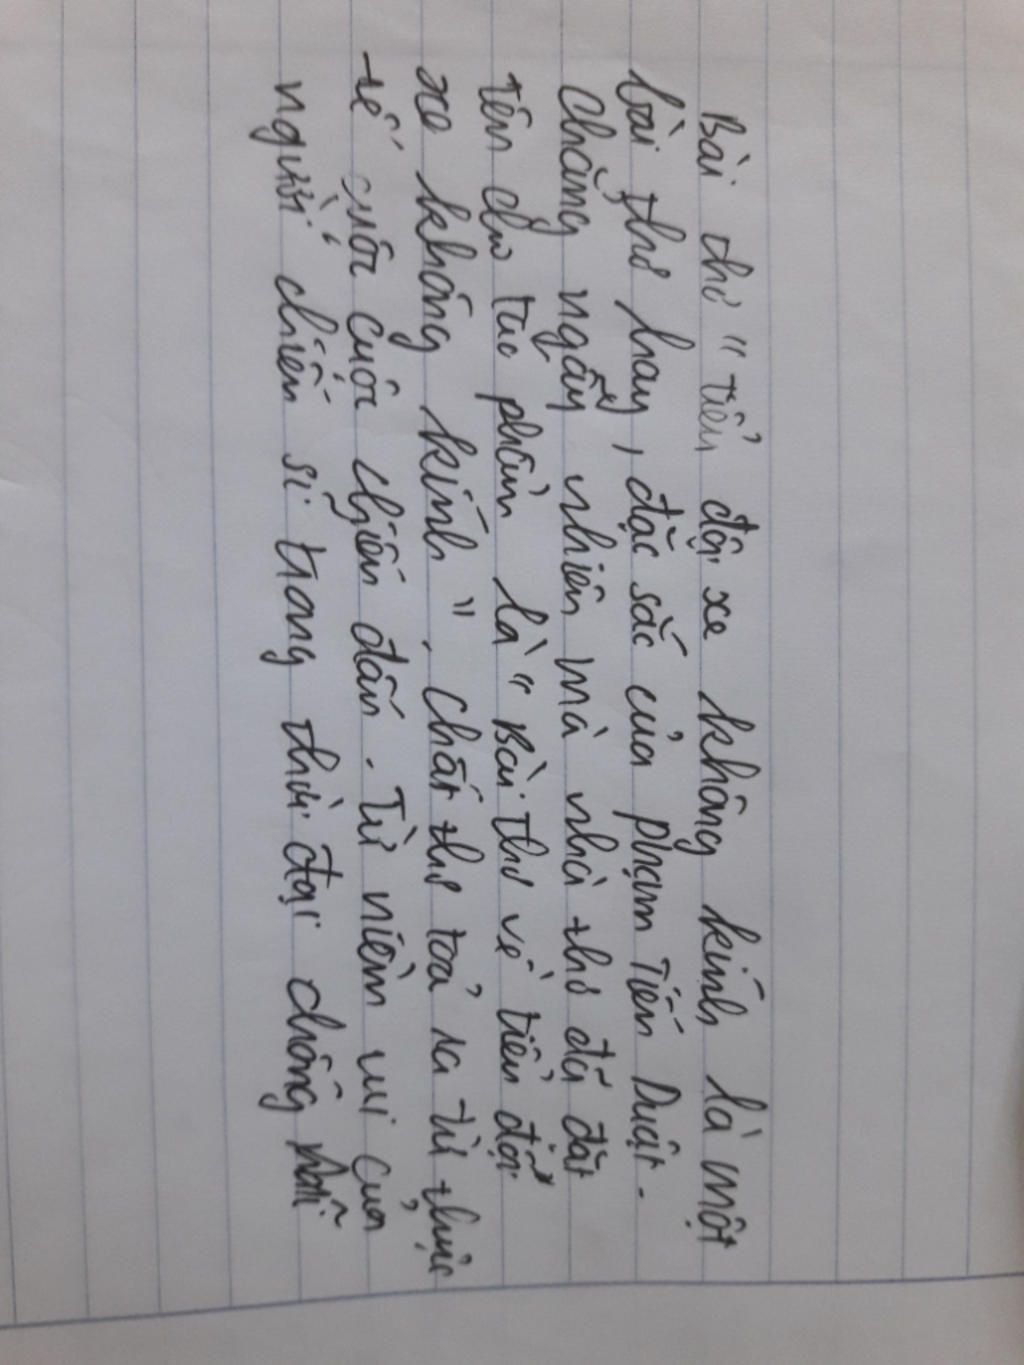 Bài thơ " tiểu đội xe không kính là một
bài thơ hay, đặc sắc của Phạm Tiến Duật.
Chẳng ngẫu nhiên mà nhà thơ đã đặt
tên cho tác phẩm là " Bài thơ về tiểu đội
xe không kính ". Chất thơ toả ra từ thực
tế cuộc chiến đấu. Từ niềm vui của
người chiến sĩ trong thời đại chống